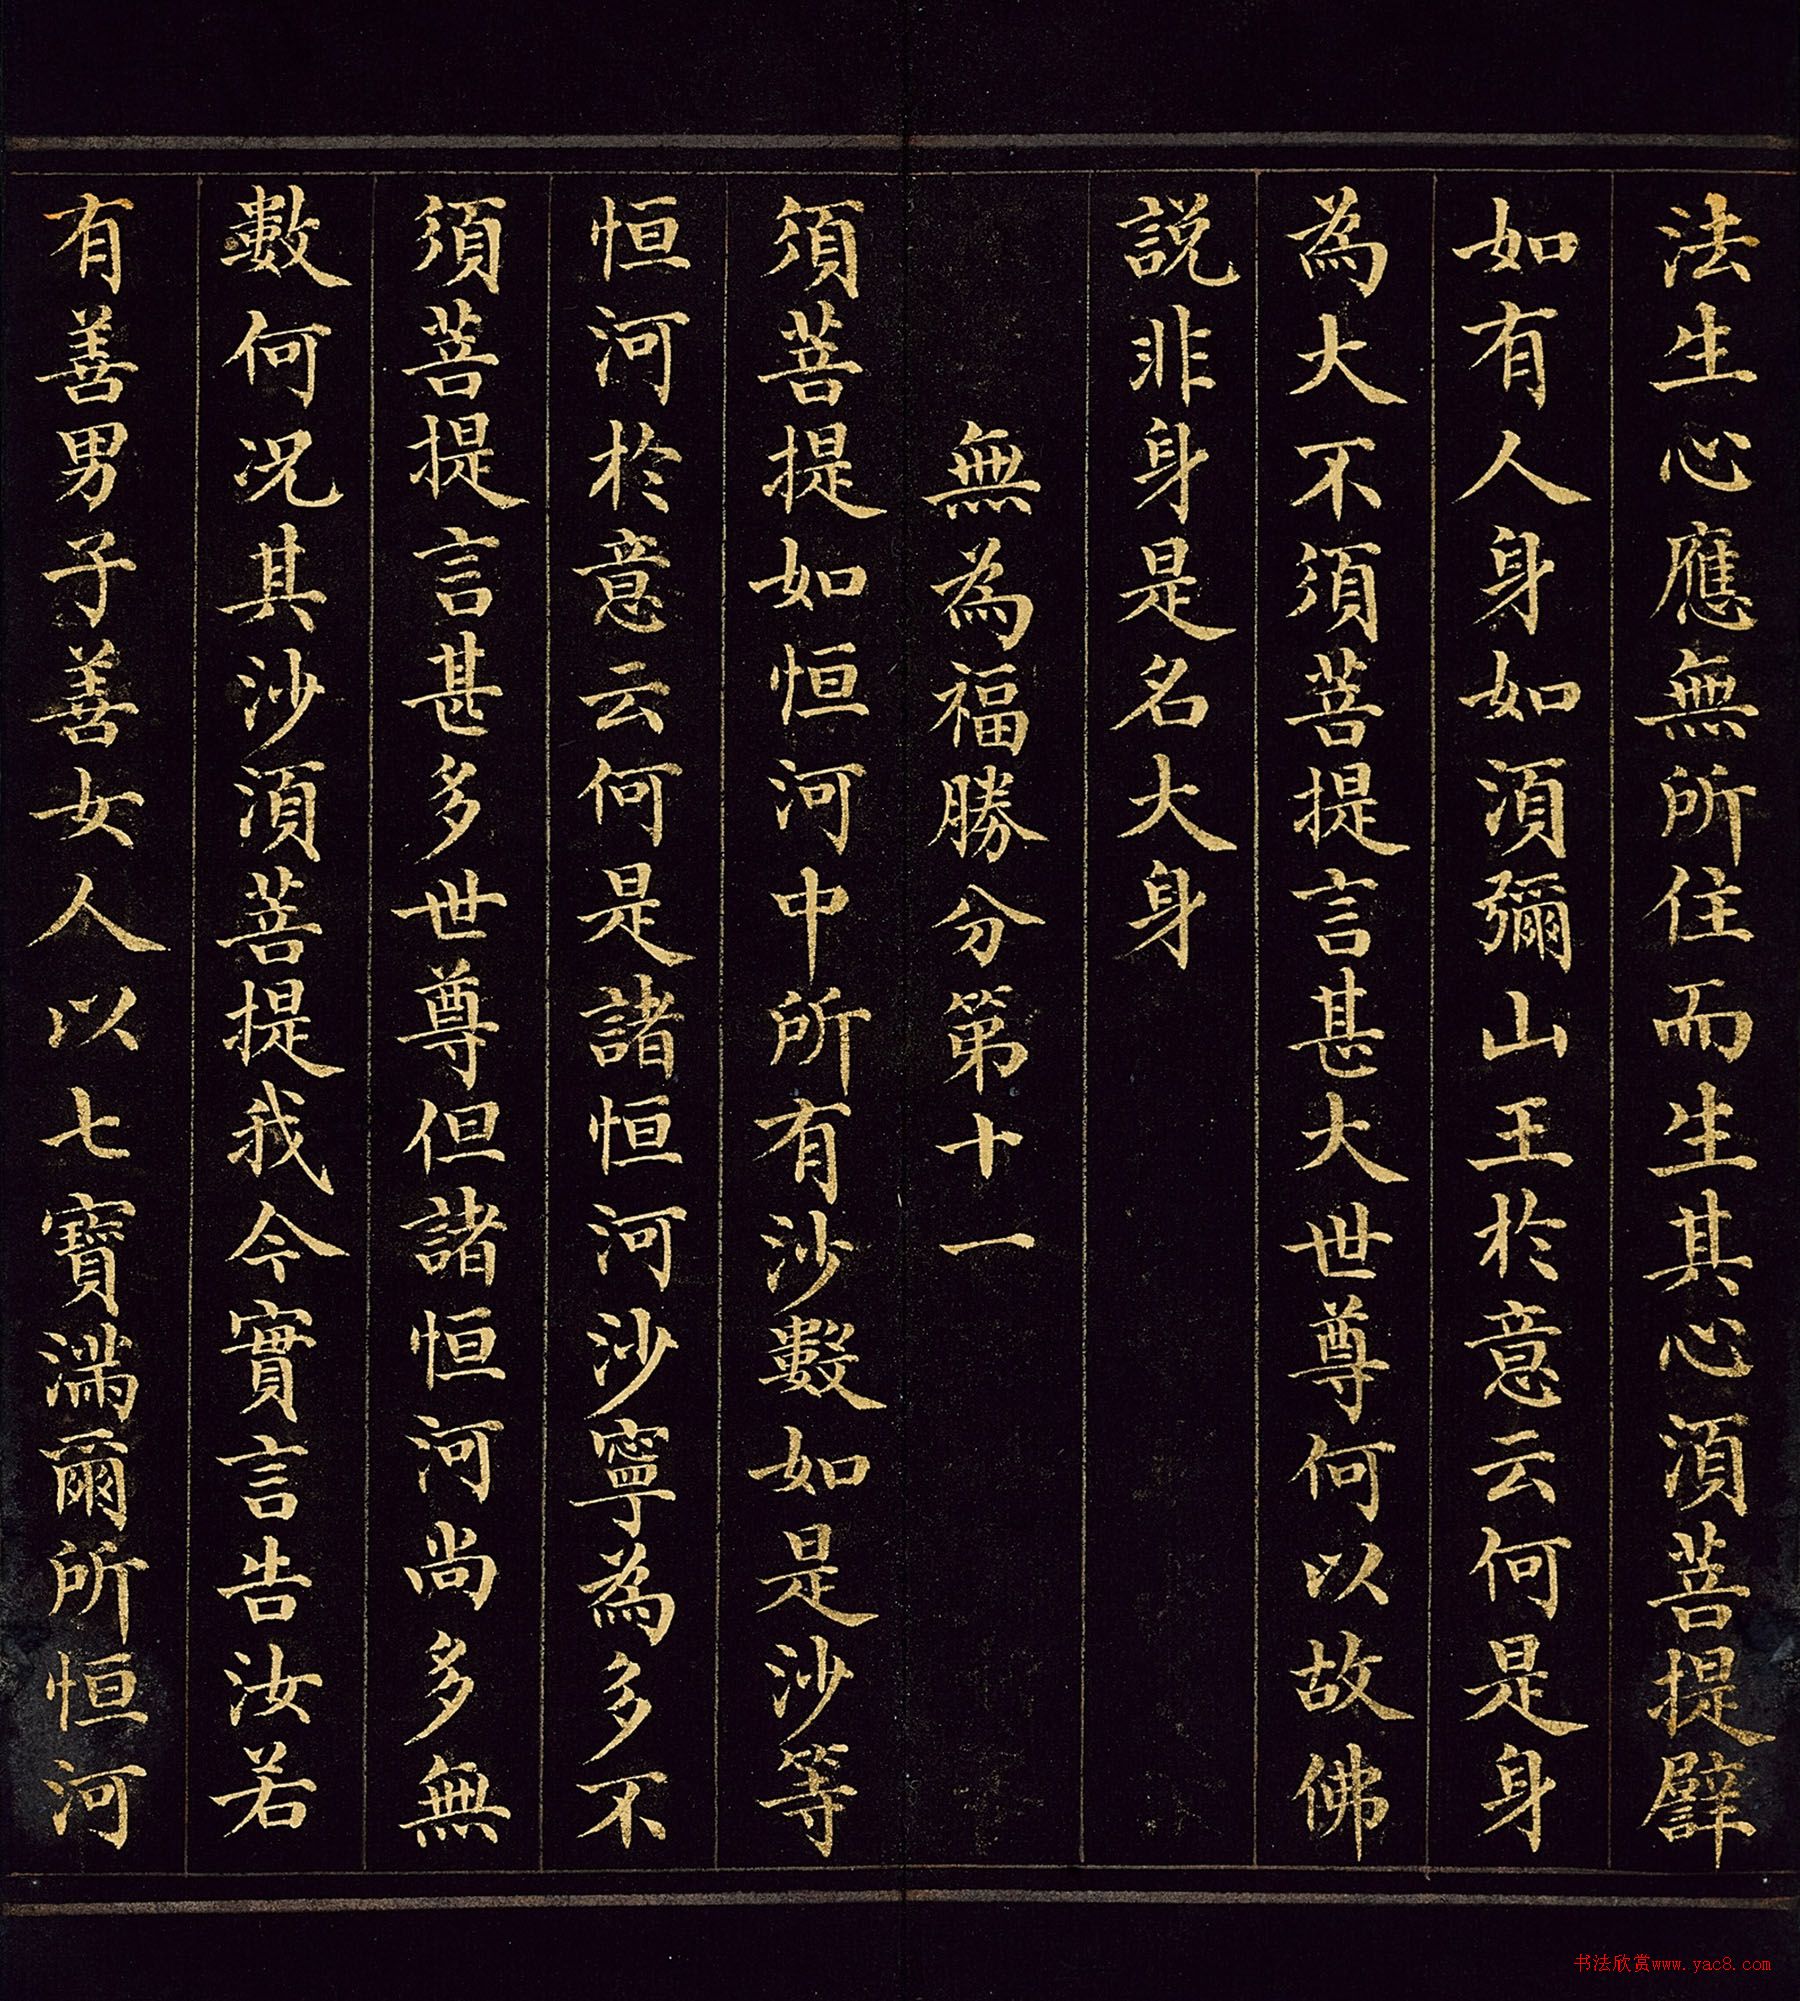 法生心應無所住而生其心須菩提譬
如有人身如須彌山王於意云何是身
為大不須菩提言甚大世尊何以故佛
説非身是名大身
無為福勝分第十一
須菩提如恒河中所有沙數如是沙等
恒河於意云何是諸恒河沙寧為多不
須菩提言甚多世尊但諸恒河尚多無
數何況其沙須菩提我今實言告汝若
有善男子善女人以七寶滿爾所恒河
书法欣赏www.yac8.com